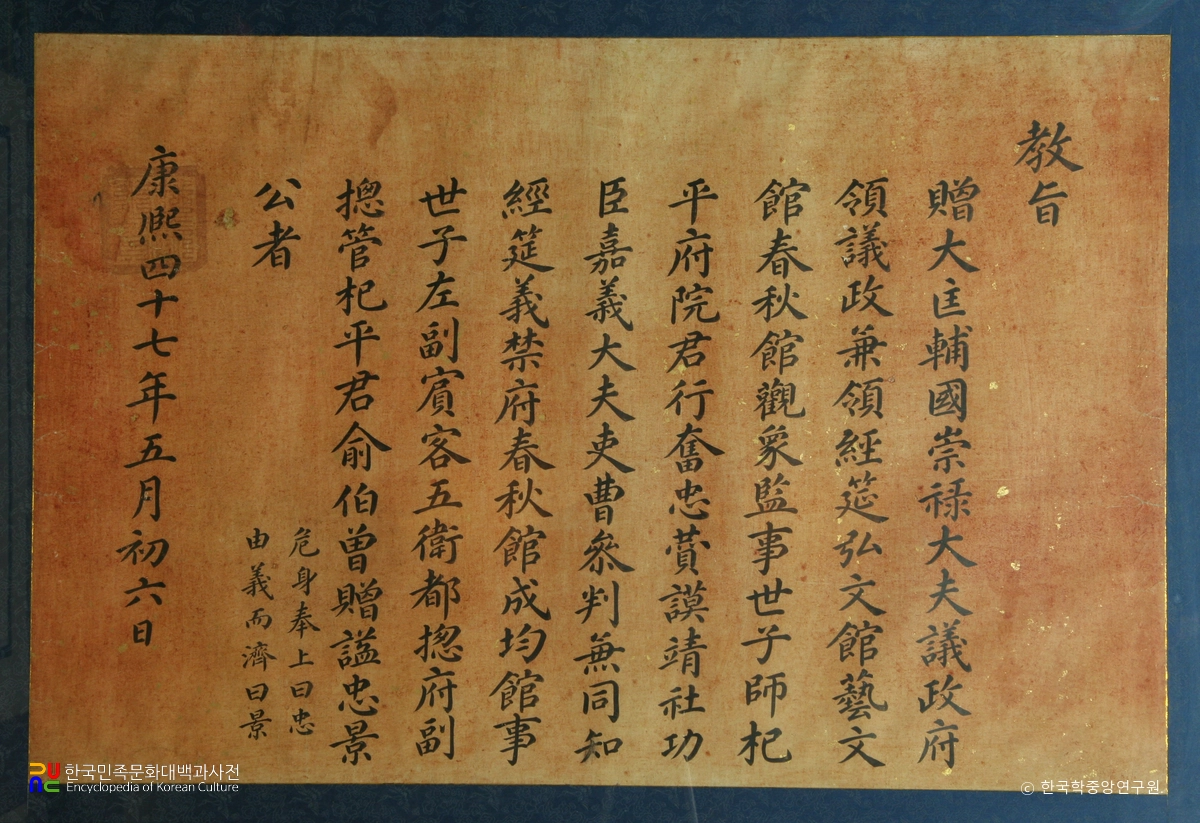 教旨
贈大匡輔國崇祿大夫議政府
領議政兼領經筵弘文館藝文
館春秋館觀象監事世子師杞
平府院君行奮忠贊謨靖社功
臣嘉義大夫吏曹參判兼同知
經筵義禁府春秋館成均館事
世子左副賓客五衛都摠府副
摠管杞平君俞伯曾贈諡忠景
公者
危身奉上曰忠
由義而濟曰景
康熙四十七年五月初六日
한국민족문화대백과사전
Encyclopedia of Korean Culture
© 한국학중앙연구원